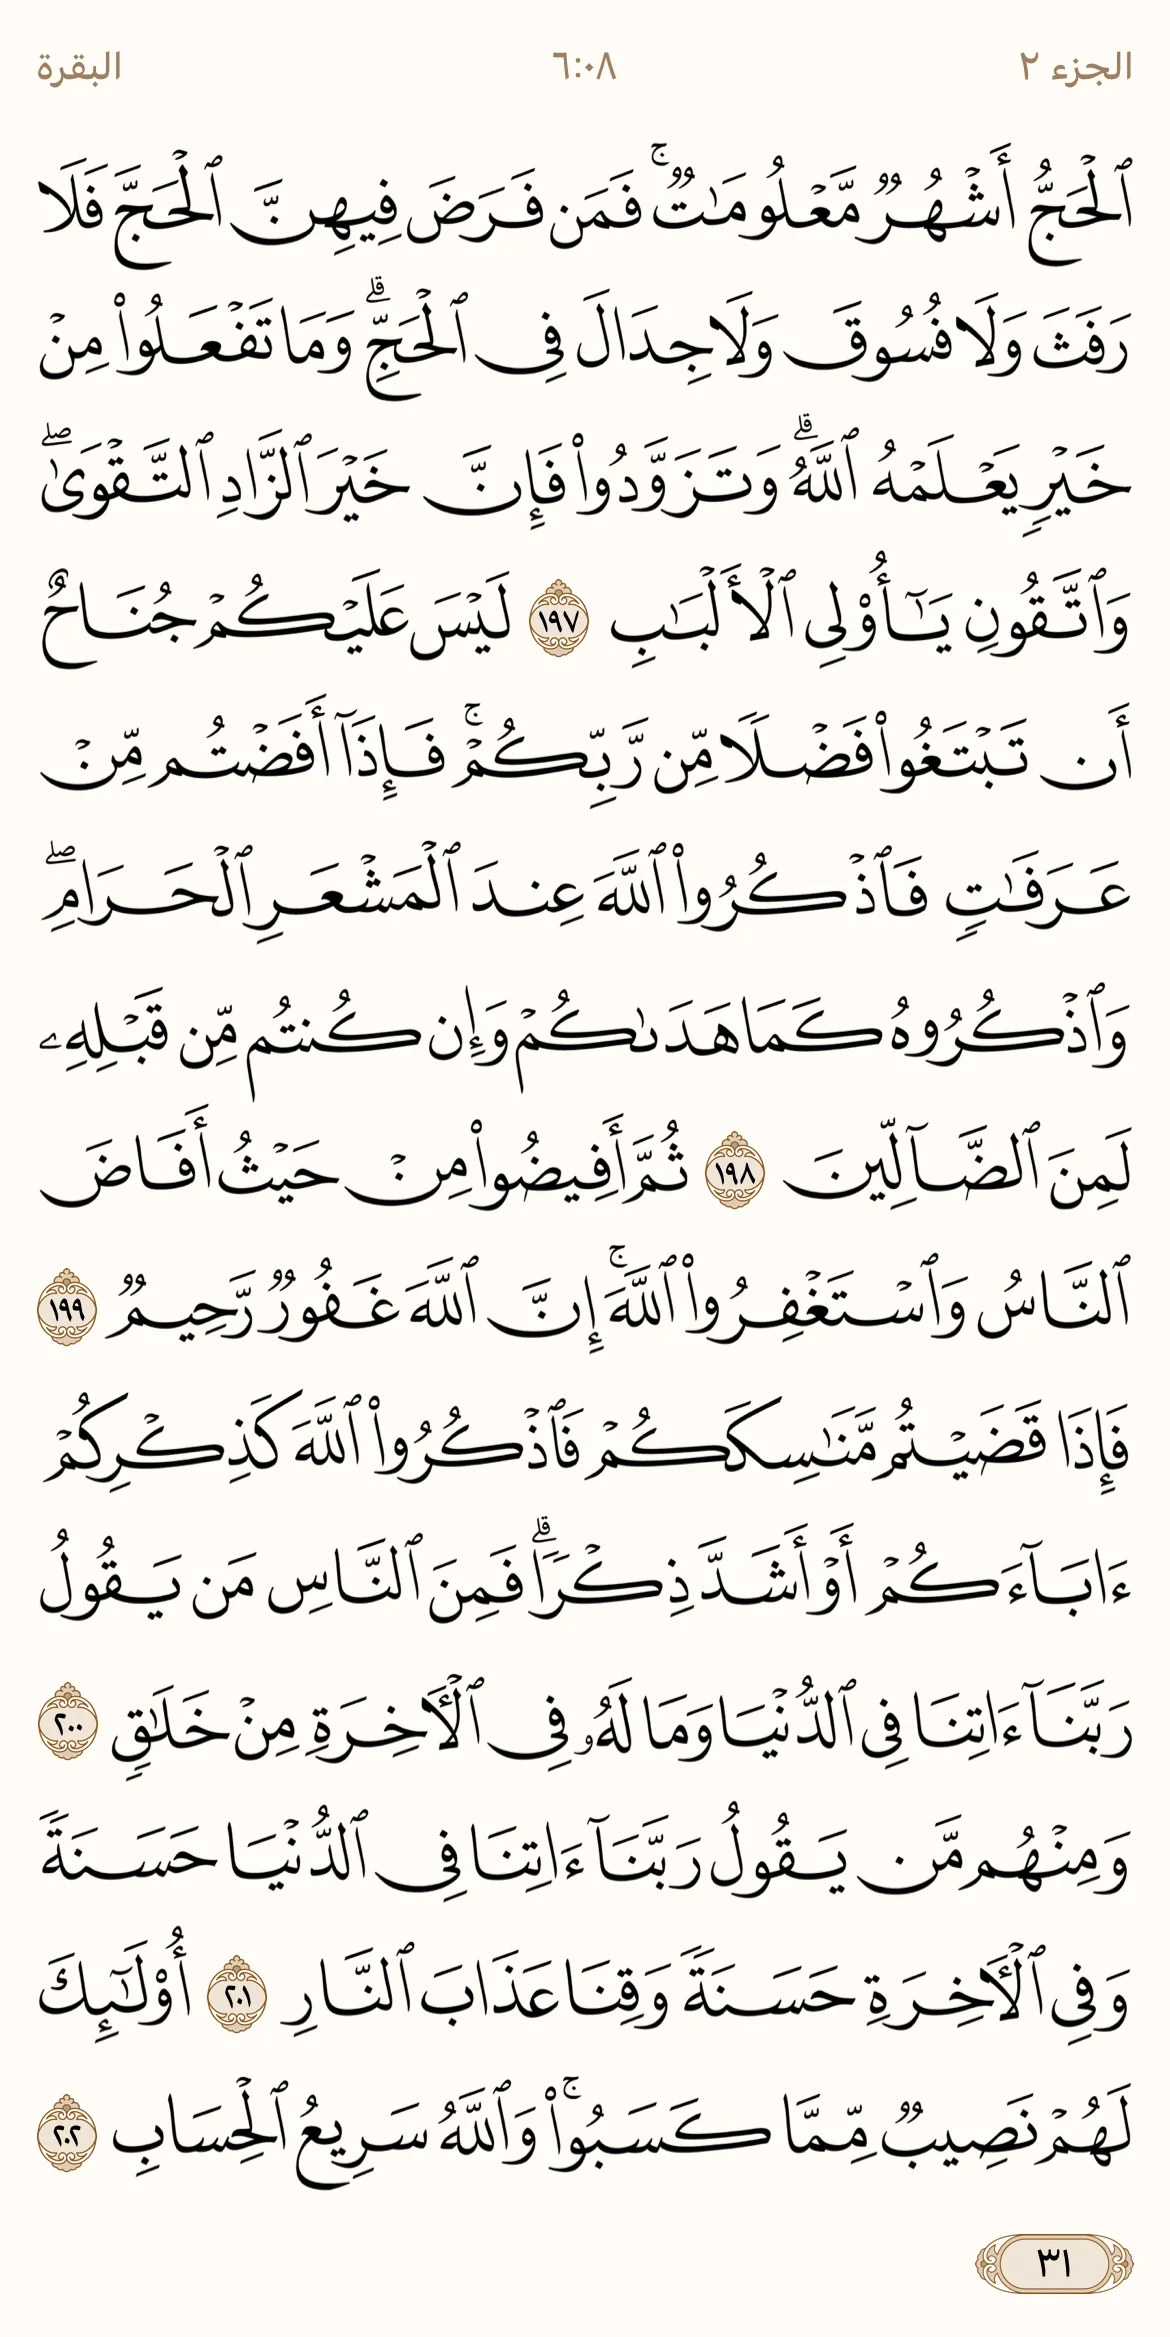 الجزء ٢
٦:٠٨
البقرة
ٱلْحَجُّ أَشْهُرٌ مَّعْلُومَٰتٌ ۚ فَمَن فَرَضَ فِيهِنَّ ٱلْحَجَّ فَلَا
رَفَثَ وَلَا فُسُوقَ وَلَا جِدَالَ فِى ٱلْحَجِّ ۗ وَمَا تَفْعَلُوا۟ مِنْ
خَيْرٍ يَعْلَمْهُ ٱللَّهُ ۗ وَتَزَوَّدُوا۟ فَإِنَّ خَيْرَ ٱلزَّادِ ٱلتَّقْوَىٰ ۖ
وَٱتَّقُونِ يَٰٓأُو۟لِى ٱلْأَلْبَٰبِ ١٩٧ لَيْسَ عَلَيْكُمْ جُنَاحٌ
أَن تَبْتَغُوا۟ فَضْلًا مِّن رَّبِّكُمْ ۚ فَإِذَآ أَفَضْتُم مِّنْ
عَرَفَٰتٍ فَٱذْكُرُوا۟ ٱللَّهَ عِندَ ٱلْمَشْعَرِ ٱلْحَرَامِ ۖ
وَٱذْكُرُوهُ كَمَا هَدَىٰكُمْ وَإِن كُنتُم مِّن قَبْلِهِۦ
لَمِنَ ٱلضَّآلِّينَ ١٩٨ ثُمَّ أَفِيضُوا۟ مِنْ حَيْثُ أَفَاضَ
ٱلنَّاسُ وَٱسْتَغْفِرُوا۟ ٱللَّهَ ۚ إِنَّ ٱللَّهَ غَفُورٌ رَّحِيمٌ ١٩٩
فَإِذَا قَضَيْتُم مَّنَٰسِكَكُمْ فَٱذْكُرُوا۟ ٱللَّهَ كَذِكْرِكُمْ
ءَابَآءَكُمْ أَوْ أَشَدَّ ذِكْرًا ۗ فَمِنَ ٱلنَّاسِ مَن يَقُولُ
رَبَّنَآ ءَاتِنَا فِى ٱلدُّنْيَا وَمَا لَهُۥ فِى ٱلْـَٔاخِرَةِ مِنْ خَلَٰقٍ ٢٠٠
وَمِنْهُم مَّن يَقُولُ رَبَّنَآ ءَاتِنَا فِى ٱلدُّنْيَا حَسَنَةً
وَفِى ٱلْـَٔاخِرَةِ حَسَنَةً وَقِنَا عَذَابَ ٱلنَّارِ ٢٠١ أُو۟لَٰٓئِكَ
لَهُمْ نَصِيبٌ مِّمَّا كَسَبُوا۟ ۚ وَٱللَّهُ سَرِيعُ ٱلْحِسَابِ ٢٠٢
٣١